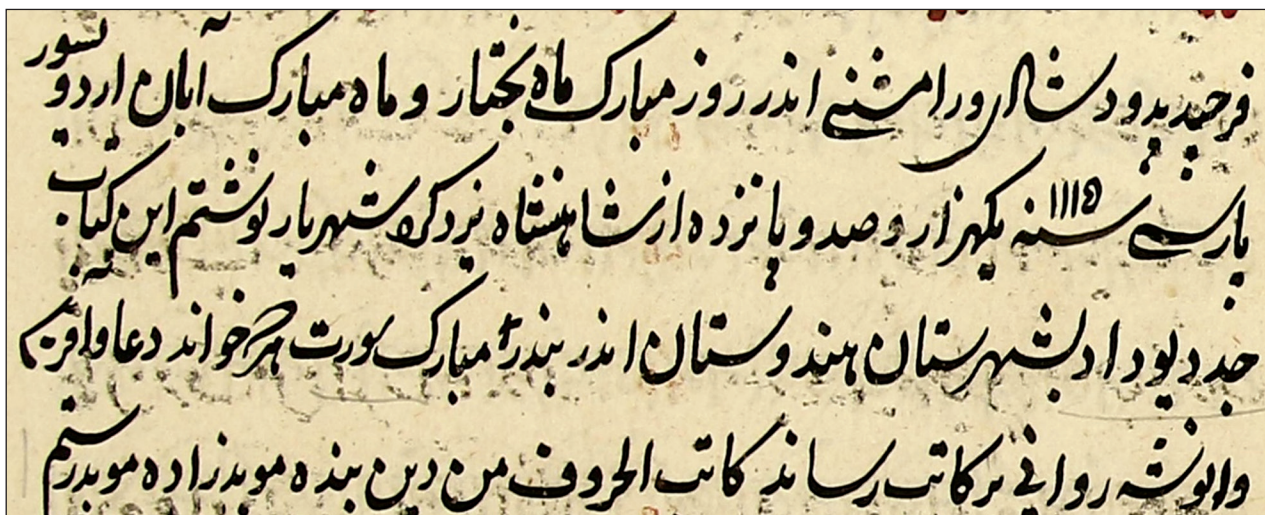 فرجید بدرود شادی و رامشنے اندر روز مبارک ماه بختار و ماه مبارک آبان اردویسور
پارسی سنه ۱۱۱۵ یکهزار و صد و پانزده از شاهنشاه یزدکرد شهریار نوشتم این کتاب
جد دیوداد بشهرستان هندوستان اندر بندر مبارک سورت هرکه خواند دعا و آفرین
وانوشه روانی بر کاتب رساند کاتب الحروف من دین بنده موبدزاده موبد رستم